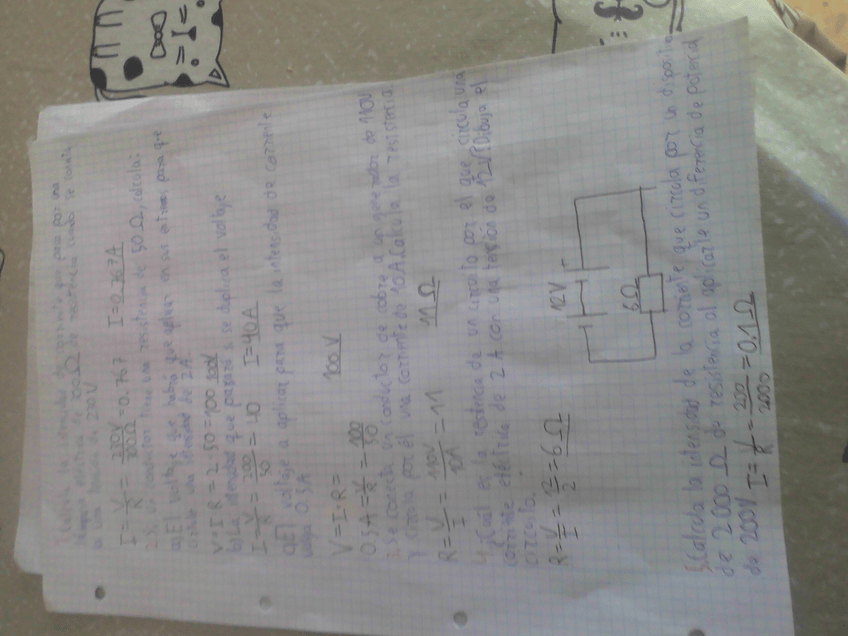 1 Calcula la intensidad de corriente que pasa por una
lámpara de 300 Ω de resistencia cuando se conecta
a una tensión de 230 V
I = V/R = 230V/300Ω = 0.767 I = 0.767A
2 Si un conductor tiene una resistencia de 50 Ω, calcula:
a) El voltaje que habrá que aplicar en sus extremos para que
circule una intensidad de 2A.
V = I·R = 2·50 = 100 100V
b) La intensidad que pasará si se duplica el voltaje
I = V/R = 200/50 = 40 I = 40A
c) El voltaje a aplicar para que la intensidad de corriente
valga 0.5A
V = I·R = 100V
0.5A = V/R = 100/50
3 Se conecta un conductor de cobre a un generador de 110V
y circula por él una corriente de 10A. Calcula la resistencia.
R = V/I = 110V/10A = 11 11 Ω
4 ¿Cuál es la resistencia de un circuito por el que circula una
corriente eléctrica de 2 A con una tensión de 12V? Dibuja el
circuito.
R = V/I = 12/2 = 6 Ω
12V
6Ω
5 Calcula la intensidad de la corriente que circula por un dispositivo
de 2000 Ω de resistencia al aplicarle un diferencia de potencial
de 200V I = V/R = 200/2000 = 0.1 Ω